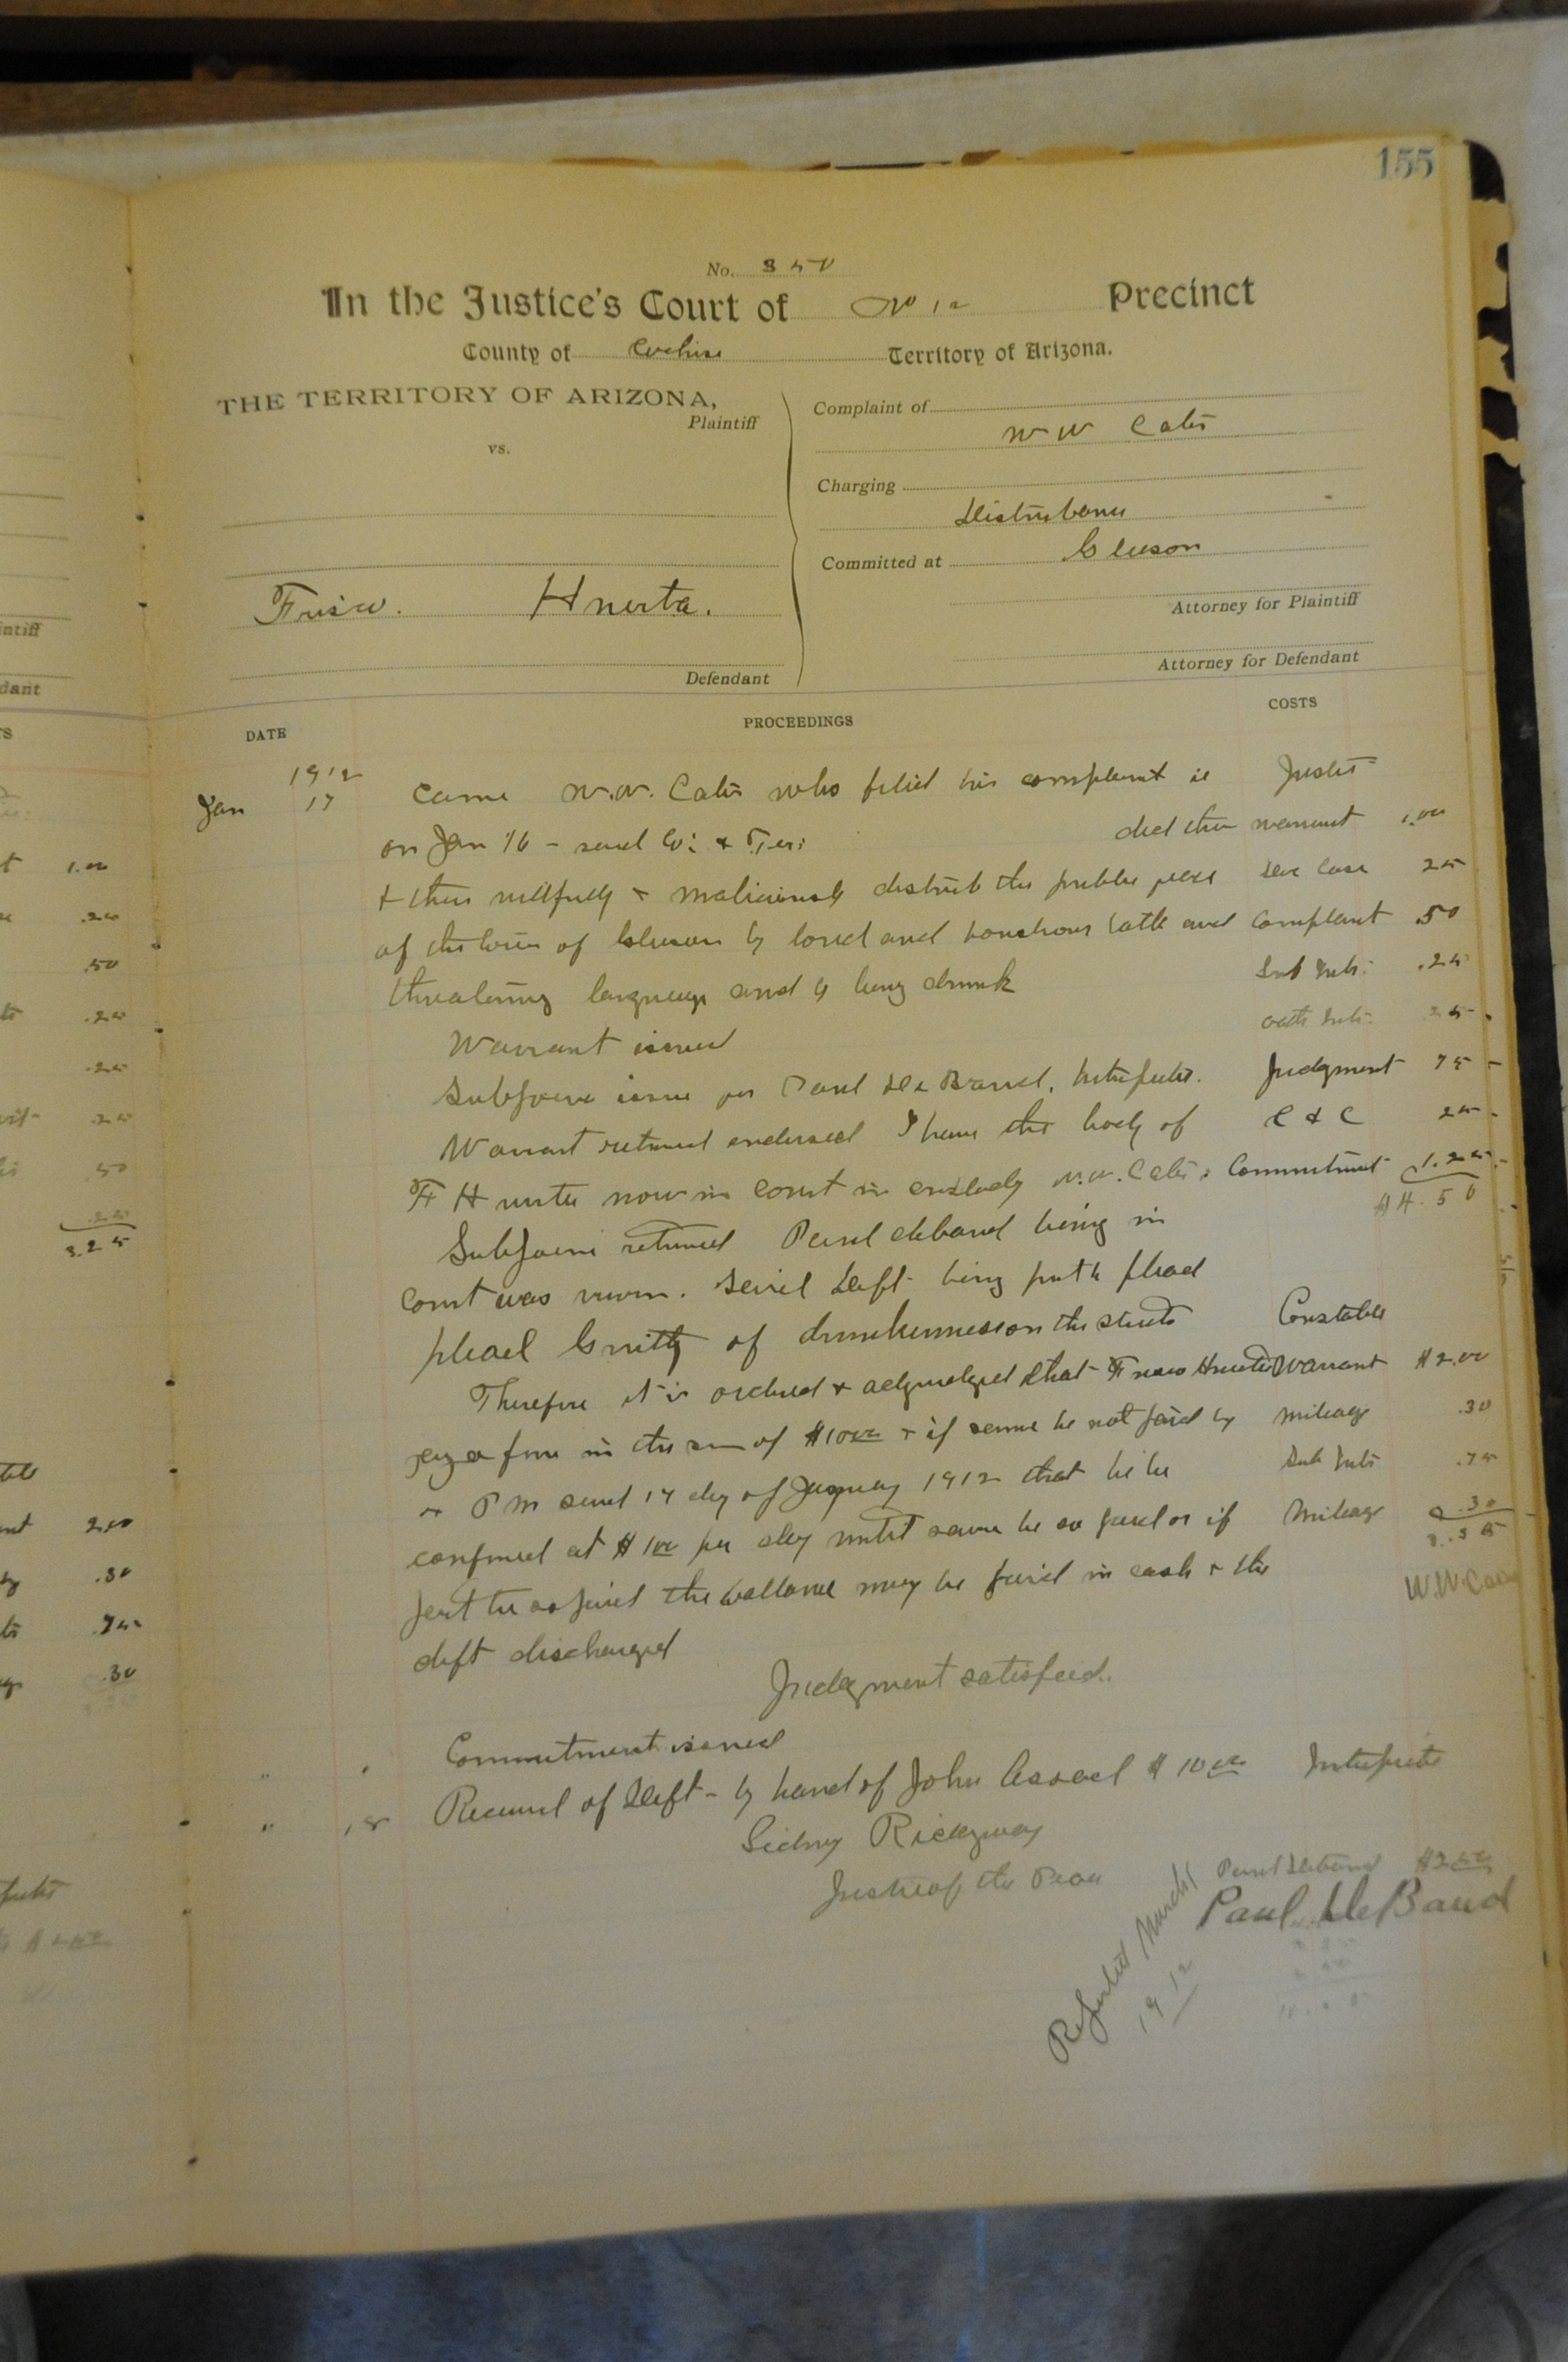 155
No. 350
In the Justice's Court of No 12 Precinct
County of Cochise Territory of Arizona.
THE TERRITORY OF ARIZONA,
Plaintiff
vs.
Frisco. Huerta.
Defendant
Complaint of
W W Cates
Charging
Disturbance
Committed at Gleeson
Attorney for Plaintiff
Attorney for Defendant
DATE PROCEEDINGS COSTS
1912
Jan 17 Came W.W. Cates who filed his complaint Justice
on Jan 16 - said Co: & Ter: did then warrant 1.00
& there willfully & maliciously disturb the public peace Doc Case 25
of the town of Gleeson by loud and talk and Complaint .50
threatening language and by being drunk Sub Inti. .25
Warrant issued oath Inti. 25
Subpoena issue for Paul De Baud, Interpreter. Judgment 75
Warrant returned endorsed I have the body of C & C 25
F Huerta now in court in custody W.W. Cates Commitment 1.25
$4.50
Subpoena returned Paul debaud being in
Court was sworn. Said Deft. being put to plead
plead Guilty of drunkenness on the streets Constable
Therefore it is ordered & adjudged that Frisco Huerta Warrant $2.00
pay a fine in the sum of $10.00 & if same be not paid by Mileage .30
PM said 17 day of January 1912 that he be Sub Inti .75
confined at $1.00 per day until same be so paid or if Mileage .30
3.35
part be so paid the ballance may be paid in cash & the
W.W. Cates
deft discharged
Judgment satisfied.
" Commitment issued
" 18 Received of Deft - by hand of John $10.00 Interpreter
Sidney Ridgway
Justice of the Peace Paul Debaud $2.50
Paul DeBaud
Reported March
1912
1.00
.25
.50
.25
.25
.25
50
.25
3.25
2.00
.30
.75
.30